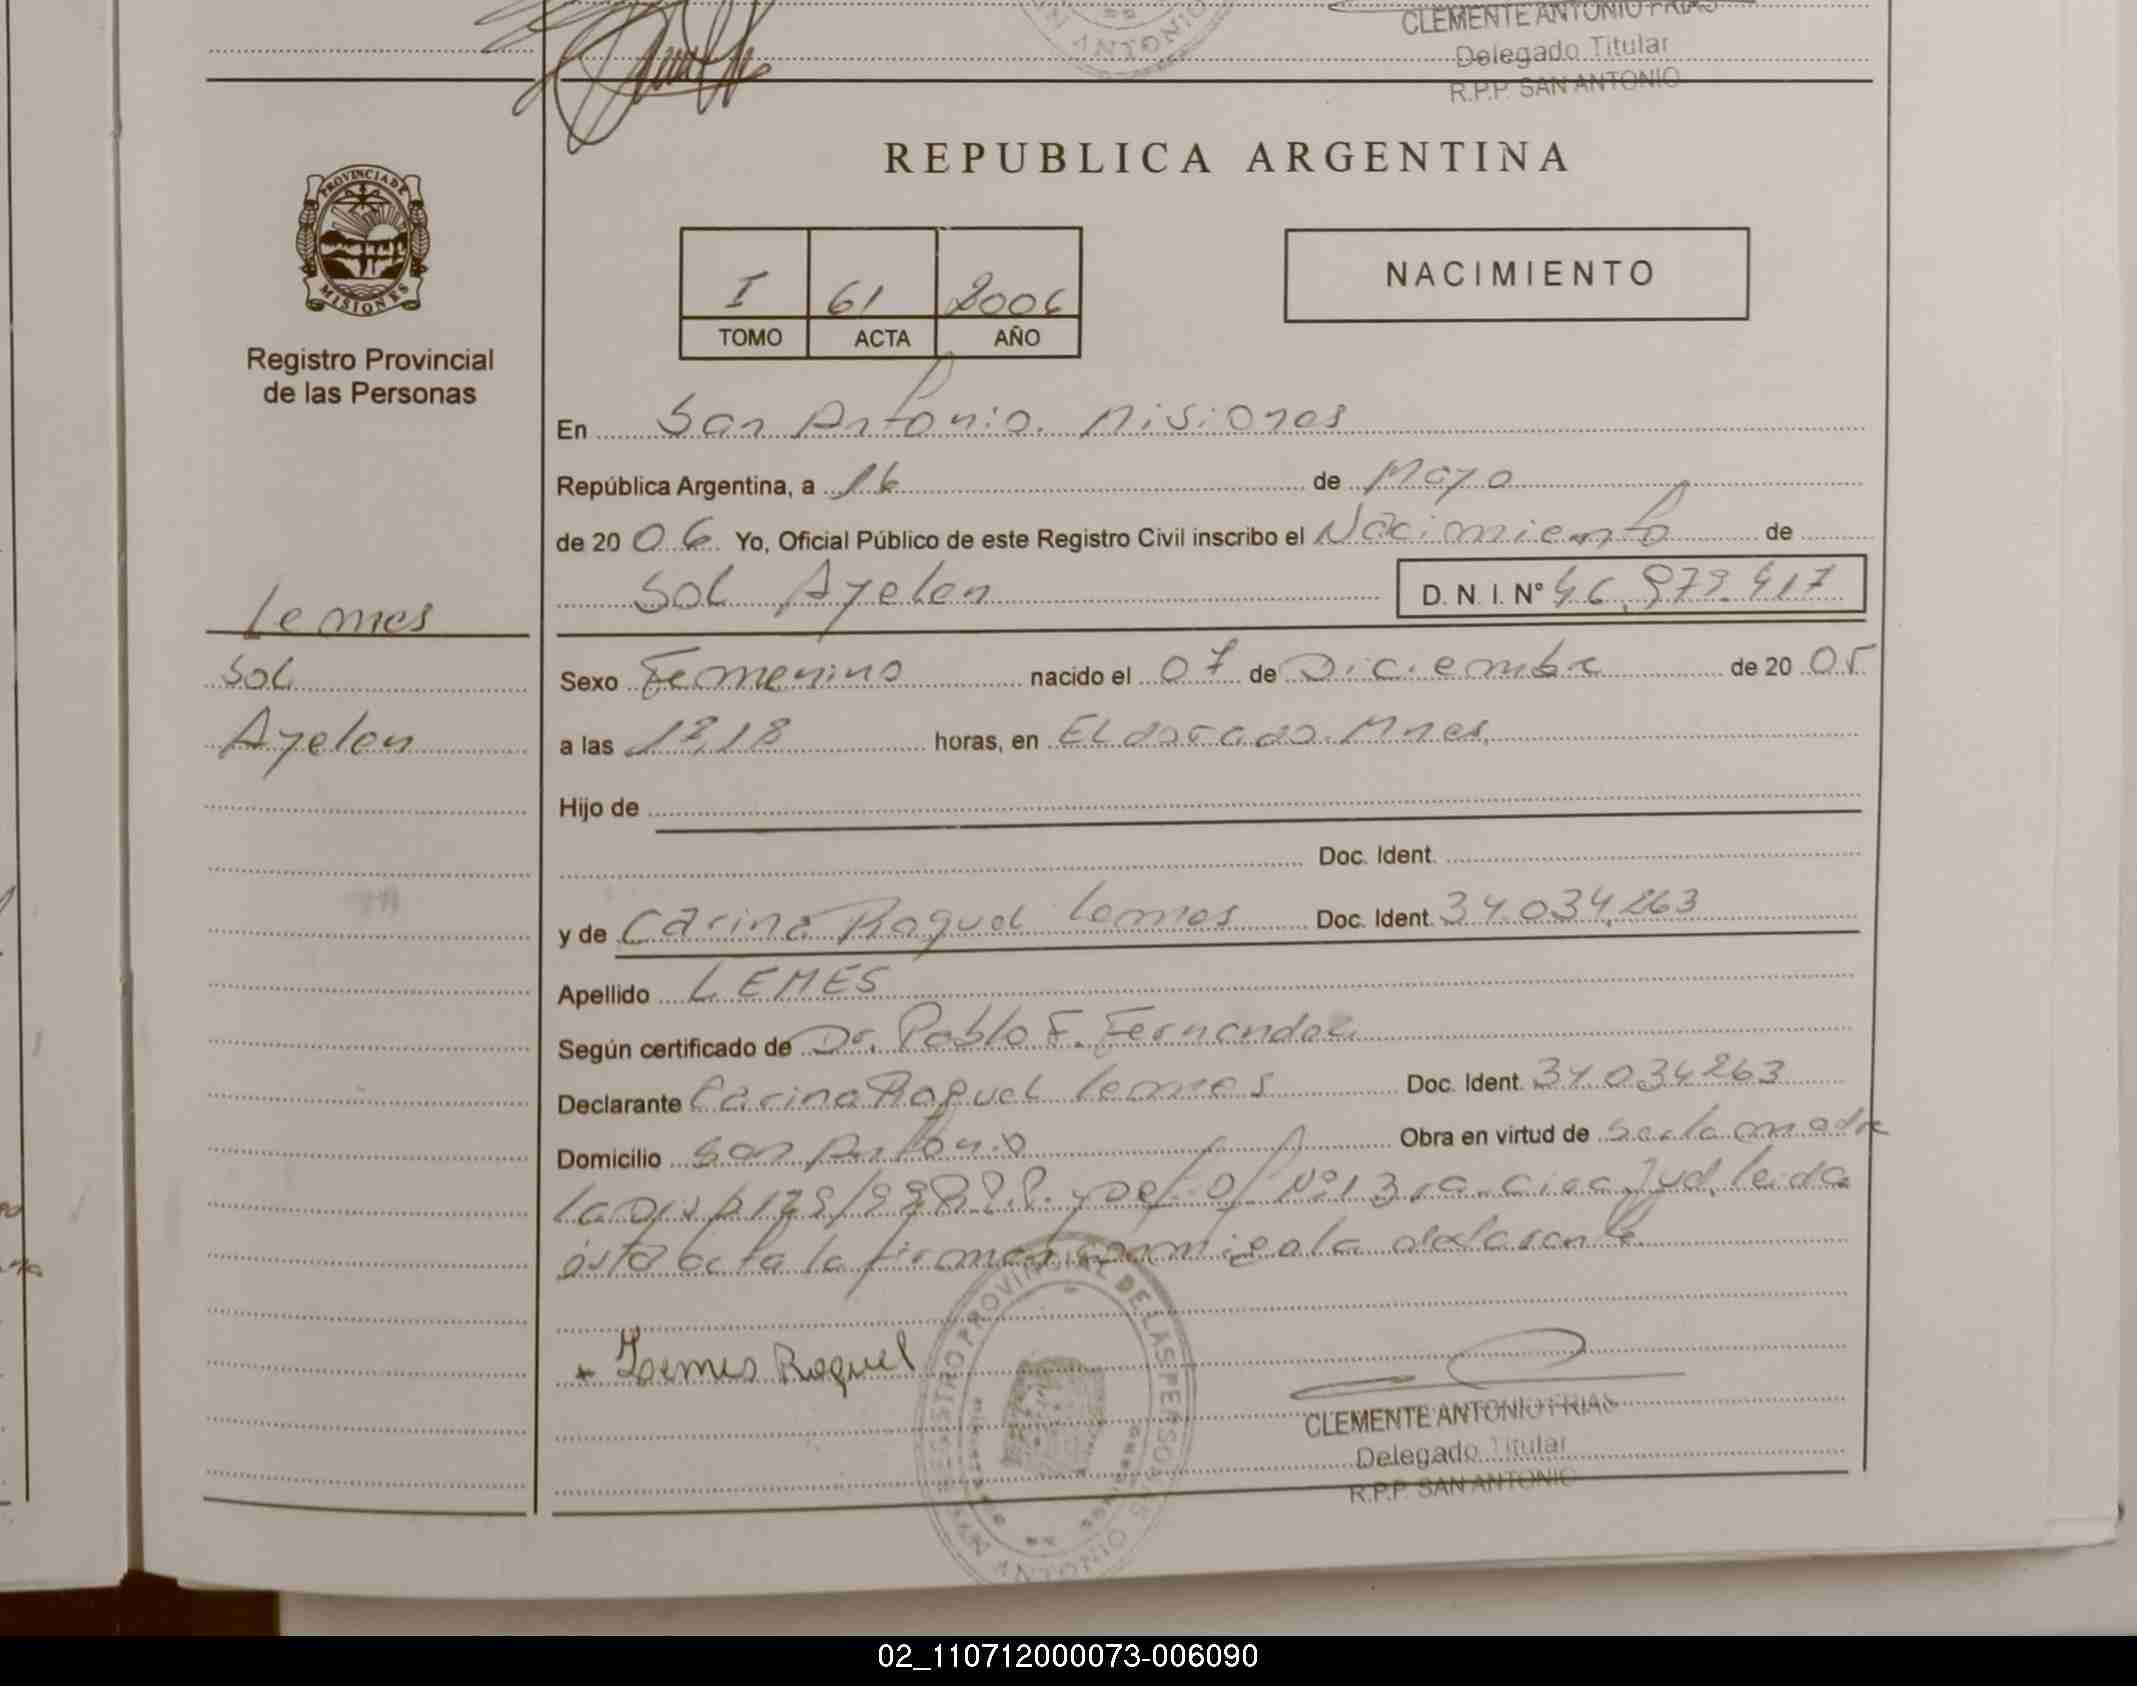 CLEMENTE ANTONIO FRIAS
Delegado Titular
R.P.P. SAN ANTONIO
PROVINCIA DE
MISIONES
Registro Provincial
de las Personas
REPUBLICA ARGENTINA
I 61 2006
TOMO ACTA AÑO
NACIMIENTO
En San Antonio. Misiones
República Argentina, a 16 de Mayo
de 20 06 Yo, Oficial Público de este Registro Civil inscribo el Nacimiento de
Sol Ayelen D. N. I. N° 46.979.417
Lemes
Sol
Ayelen
Sexo Femenino nacido el 07 de Diciembre de 20 05
a las horas, en Eldorado. Mnes.
Hijo de
Doc. Ident.
y de Carina Raquel Lemes Doc. Ident. 34.034.263
Apellido LEMES
Según certificado de Dr. Pablo F. Fernandez
Declarante Carina Raquel Lemes Doc. Ident. 34.034263
Domicilio San Antonio Obra en virtud de ser la madre
Jud. leida
ésta acta la firman conmigo la declarante
+ Lemes Raquel
REGISTRO PROVINCIAL DE LAS PERSONAS
SAN ANTONIO
CLEMENTE ANTONIO FRIAS
Delegado Titular
R.P.P. SAN ANTONIO
02_110712000073-006090